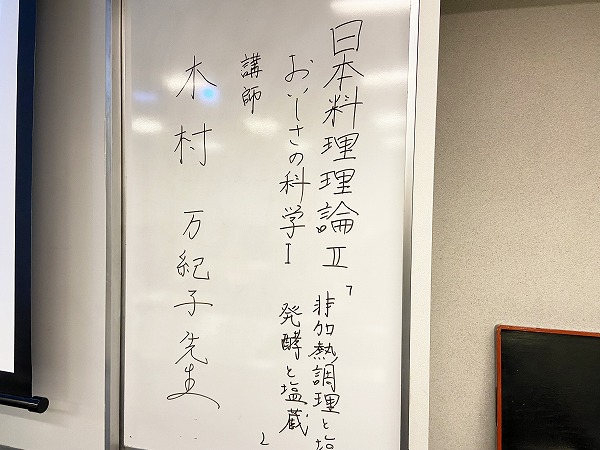 日本料理理論Ⅱ
おいしさの科学Ⅰ
「非加熱調理と塩
発酵と塩蔵」
講師
木村 万紀子先生